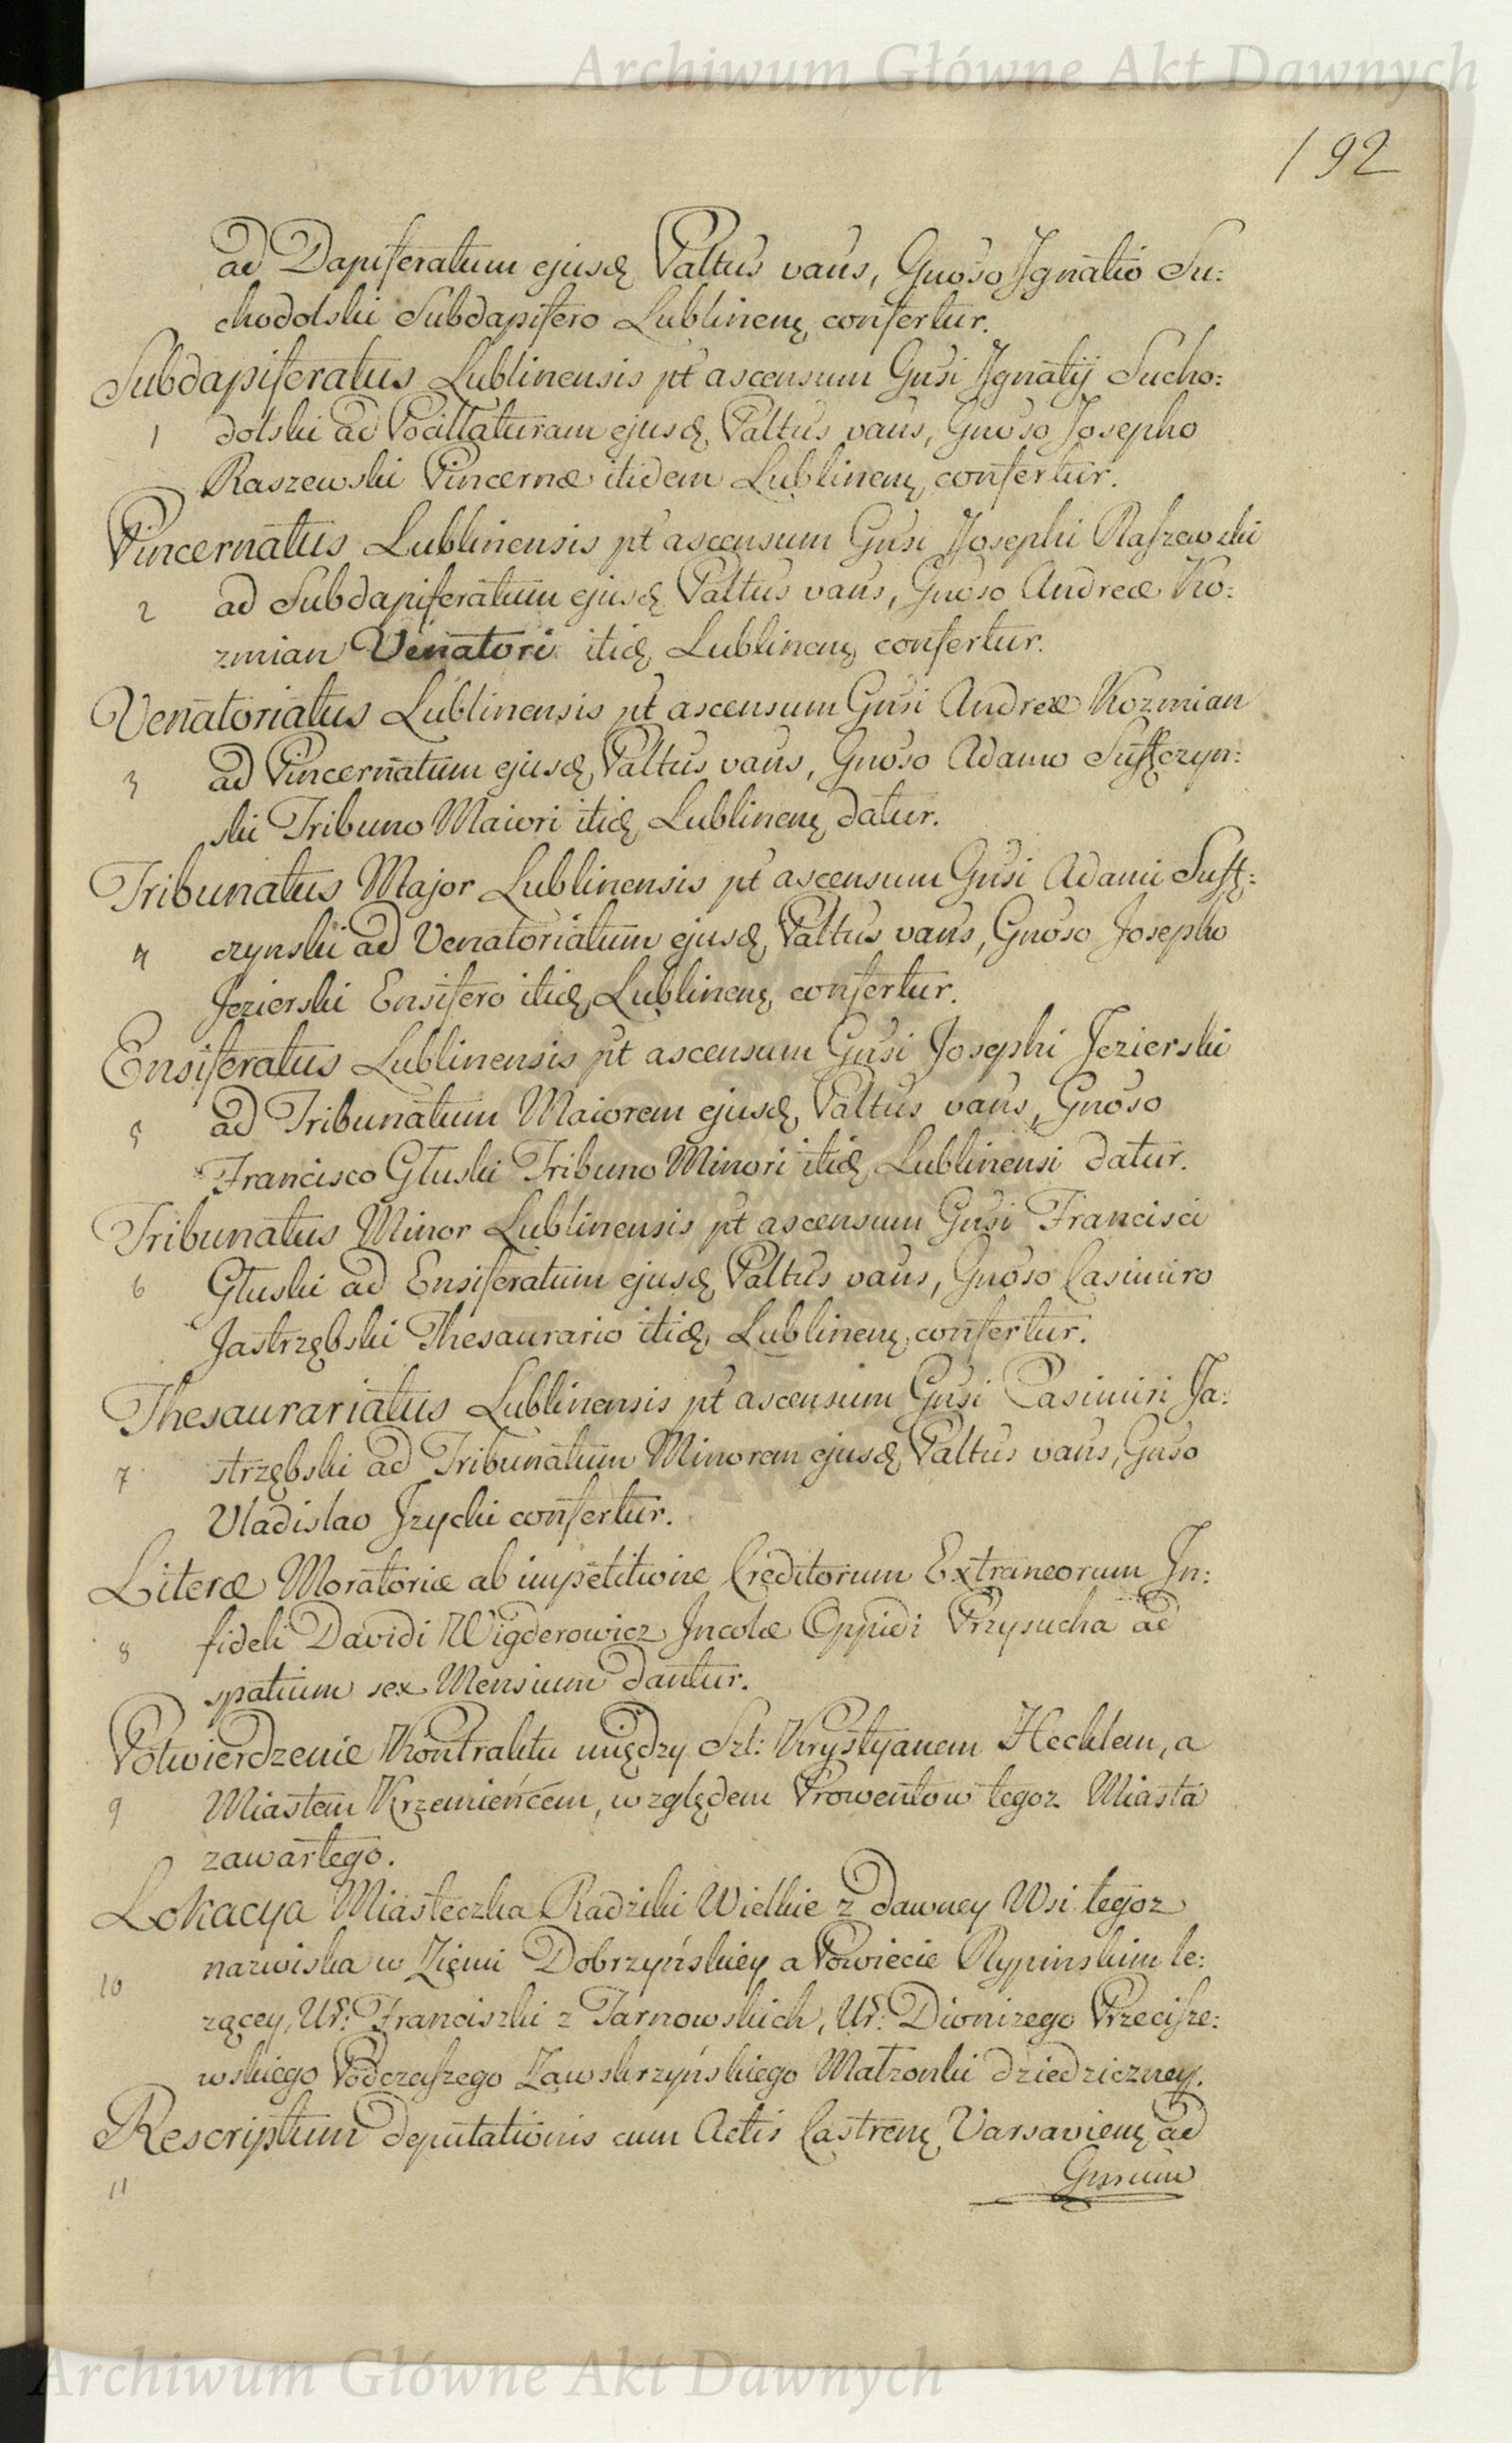 Archiwum Główne Akt Dawnych
192
ad Dapiferatum ejusd Paltus vans, Gnoso Ignatio Su:
chodolski Subdapifero Lublinens confertur.
Subdapiferatus Lublinensis pt ascensum Gnsi Ignatij Sucho:
1 dolski ad Pocillaturam ejusd Paltus vans, Gnoso Josepho
Raszewski Pincernæ itidem Lublinens confertur.
Pincernatus Lublinensis pt ascensum Gnsi Josephi Raszewski
2 ad Subdapiferatum ejusd Paltus vans, Gnoso Andreæ Ko:
zmian Venatori itid Lublinens confertur.
Venatoriatus Lublinensis pt ascensum Gnsi Andreæ Kozmian
3 ad Pincernatum ejusd Paltus vans, Gnoso Adamo Suffczyn:
ski Tribuno Maiori itid Lublinens datur.
Tribunatus Major Lublinensis pt ascensum Gnsi Adami Suff:
4 czynski ad Venatoriatum ejusd Paltus vans, Gnoso Josepho
Jezierski Ensifero itid Lublinens confertur.
Ensiferatus Lublinensis pt ascensum Gnsi Josephi Jezierski
5 ad Tribunatum Maiorem ejusd Paltus vans, Gnoso
Francisco Głuski Tribuno Minori itid Lublinensi datur.
Tribunatus Minor Lublinensis pt ascensum Gnsi Francisci
6 Głuski ad Ensiferatum ejusd Paltus vans, Gnoso Casimiro
Jastrzębski Thesaurario itid Lublinens confertur.
Thesaurariatus Lublinensis pt ascensum Gnsi Casimiri Ja:
7 strzębski ad Tribunatum Minorem ejusd Paltus vans, Gnso
Vladislao Jzycki confertur.
Literæ Moratoriæ ab impetitione Creditorum Extraneorum In:
8 fideli Davidi Wigderowicz Incolæ Oppidi Przysucha ad
spatium sex Mensium dantur.
Potwierdzenie Kontraktu między Szl: Krystyanem Hecklem, a
9 Miastem Krzemieńcem, względem Prowentow tegoz Miasta
zawartego.
Lokacya Miasteczka Radziki Wielkie z dawney Wsi tegoz
10 nazwiska w Ziemi Dobrzyńskiey a Powiecie Rypinskim le:
zącey, Ur: Franciszki z Tarnowskich, Ur: Dionizego Przecisze:
wskiego Podczaszego Zawskrzyńskiego Małzonki dziedziczney.
Rescriptum deputationis cum Actis Castrens Varsaviens ad
11 Gnsum
Archiwum Główne Akt Dawnych